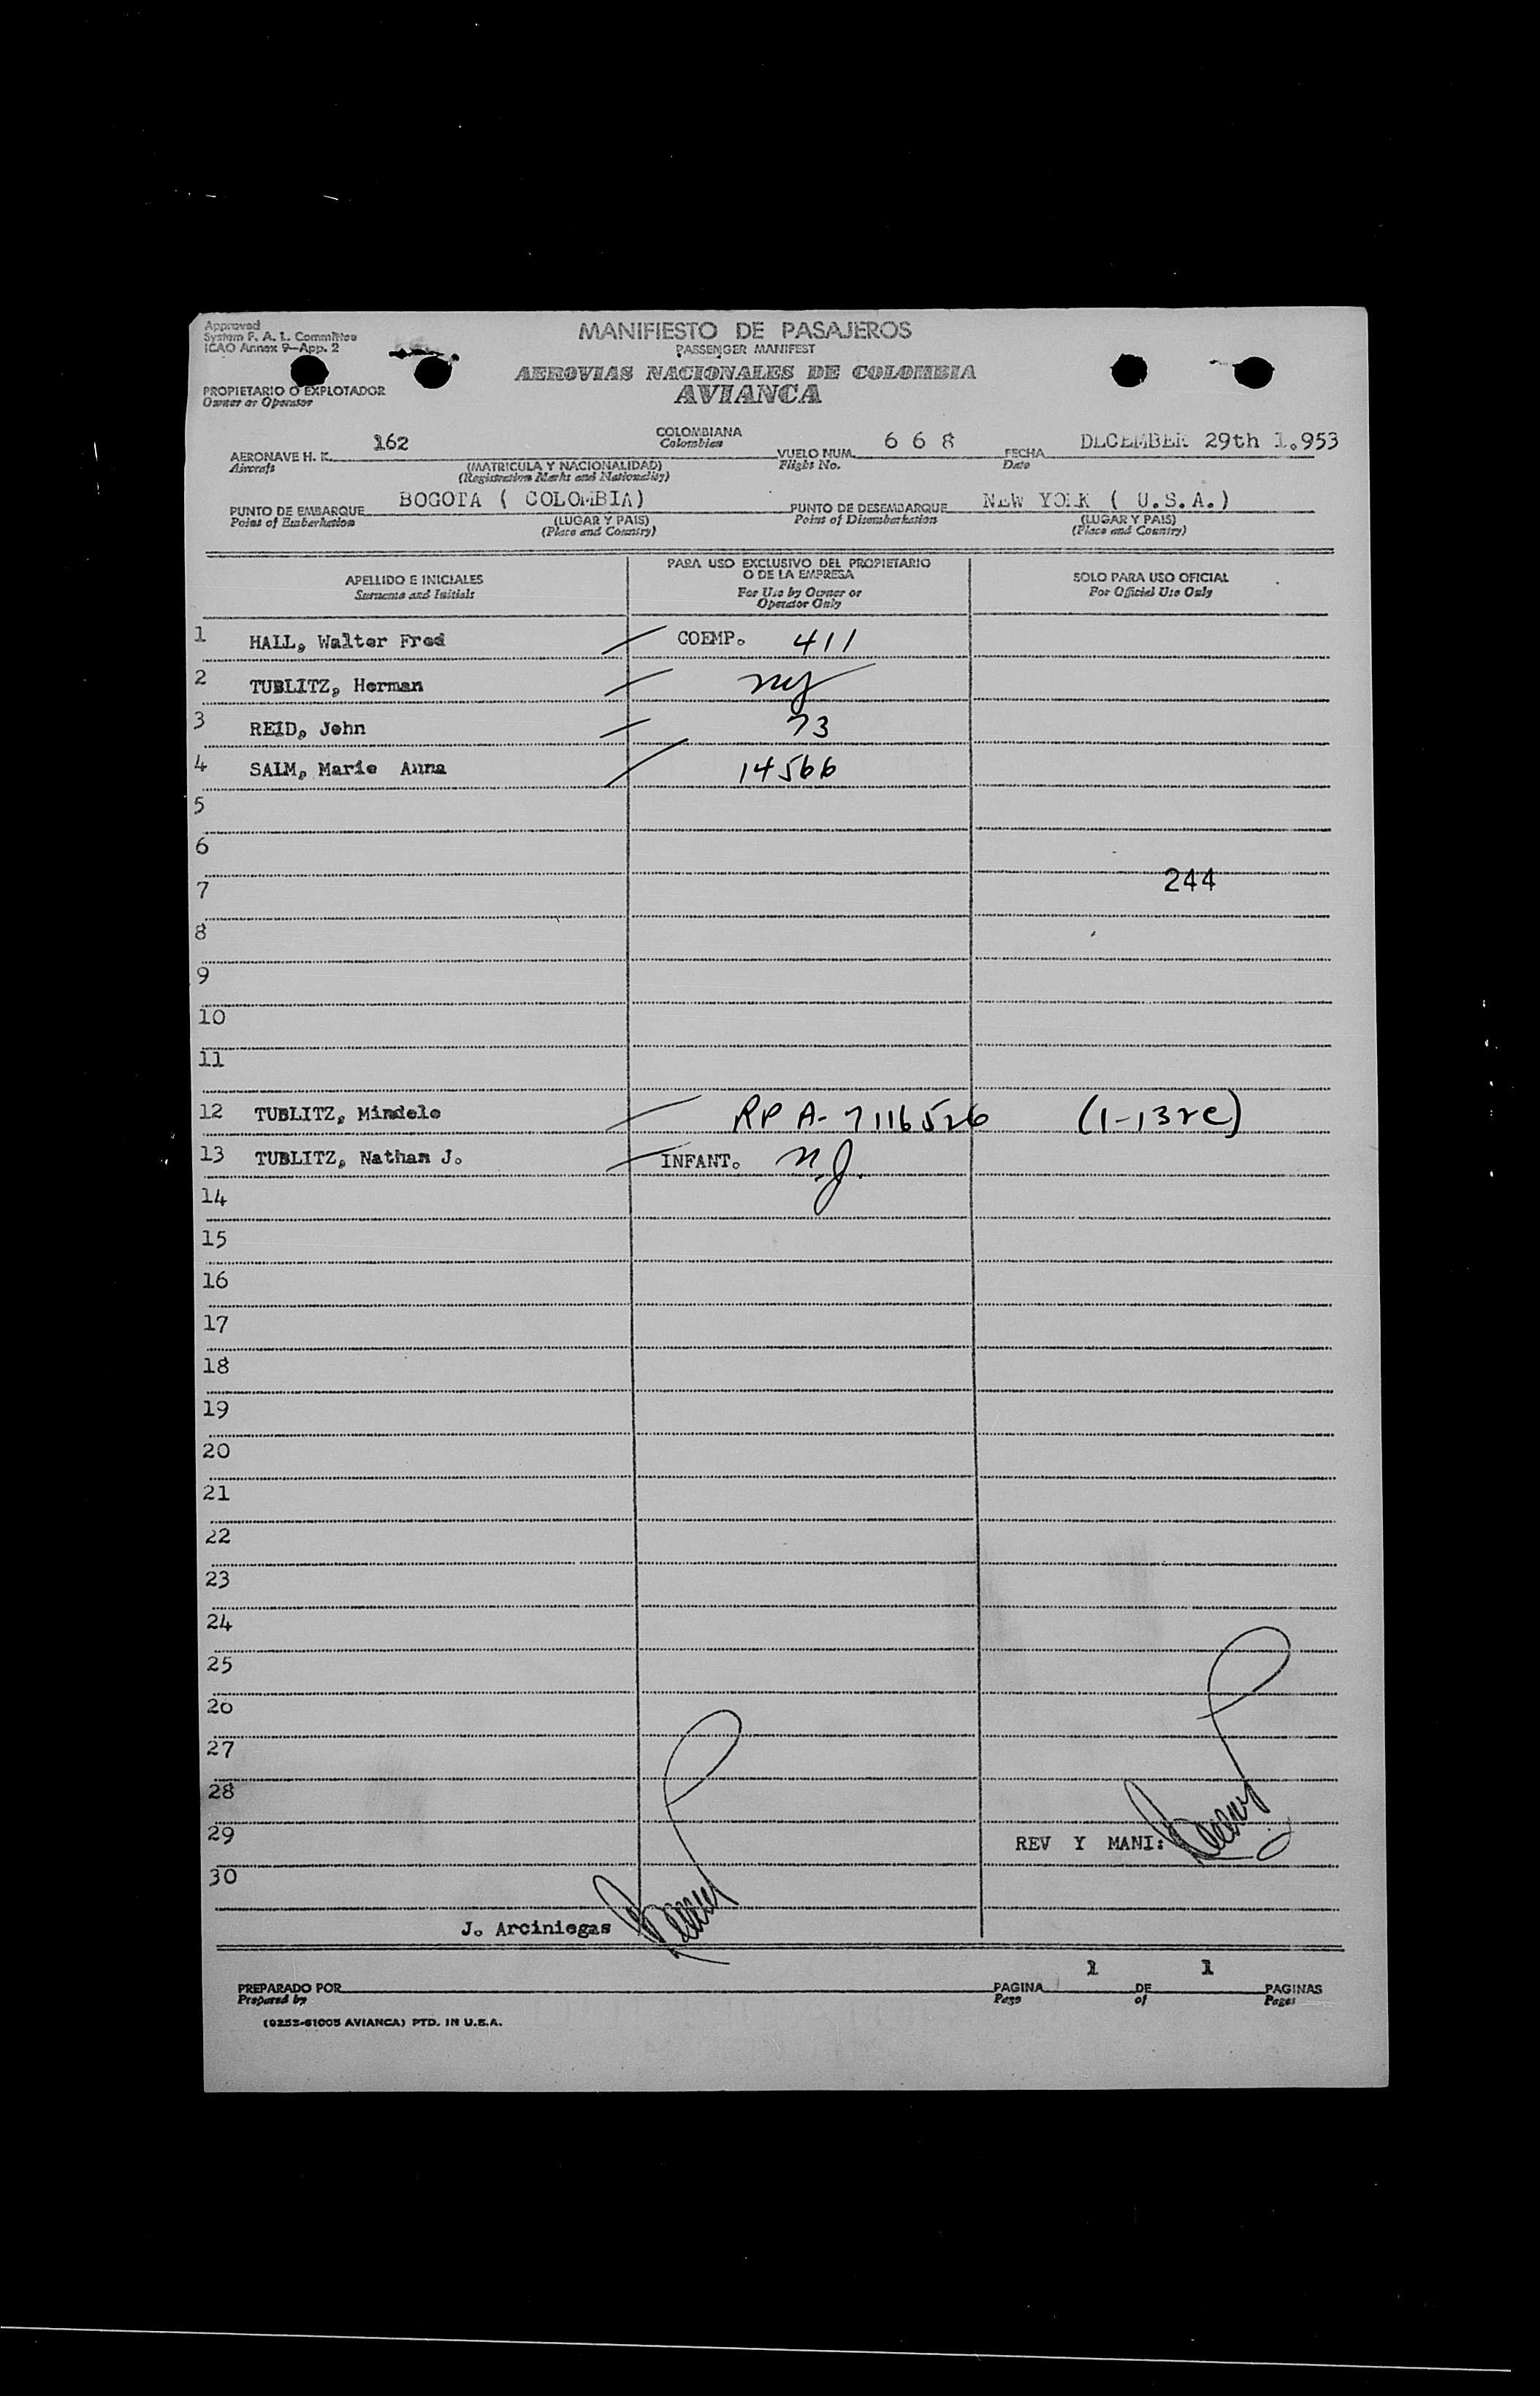 Approved
System F. A. L. Committee
ICAO Annex 9—App. 2
MANIFIESTO DE PASAJEROS
PASSENGER MANIFEST
AEROVIAS NACIONALES DE COLOMBIA
AVIANCA
PROPIETARIO O EXPLOTADOR
Owner or Operator
AERONAVE H. K. 162 COLOMBIANA VUELO NUM. 6 6 8 FECHA DECEMBER 29th 1.953
Aircraft Colombian Flight No. Date
(MATRICULA Y NACIONALIDAD)
(Registration Marks and Nationality)
PUNTO DE EMBARQUE BOGOTA ( COLOMBIA) PUNTO DE DESEMBARQUE NEW YORK ( U.S.A.)
Point of Embarkation (LUGAR Y PAIS) Point of Disembarkation (LUGAR Y PAIS)
(Place and Country) (Place and Country)
APELLIDO E INICIALES PARA USO EXCLUSIVO DEL PROPIETARIO O DE LA EMPRESA SOLO PARA USO OFICIAL
Surname and Initials For Use by Owner or Operator Only For Official Use Only
1 HALL, Walter Fred COEMP. 411
2 TUBLITZ, Herman NJ
3 REID, John 73
4 SALM, Marie Anna 14566
5
6
7 244
8
9
10
11
12 TUBLITZ, Mindele RP A-7116526 (1-13re)
13 TUBLITZ, Nathan J. INFANT. N.J.
14
15
16
17
18
19
20
21
22
23
24
25
26
27
28
29 REV Y MANI:
30
J. Arciniegas
PREPARADO POR PAGINA 1 DE 1 PAGINAS
Prepared by Page of Pages
(0253-61005 AVIANCA) PTD. IN U.S.A.